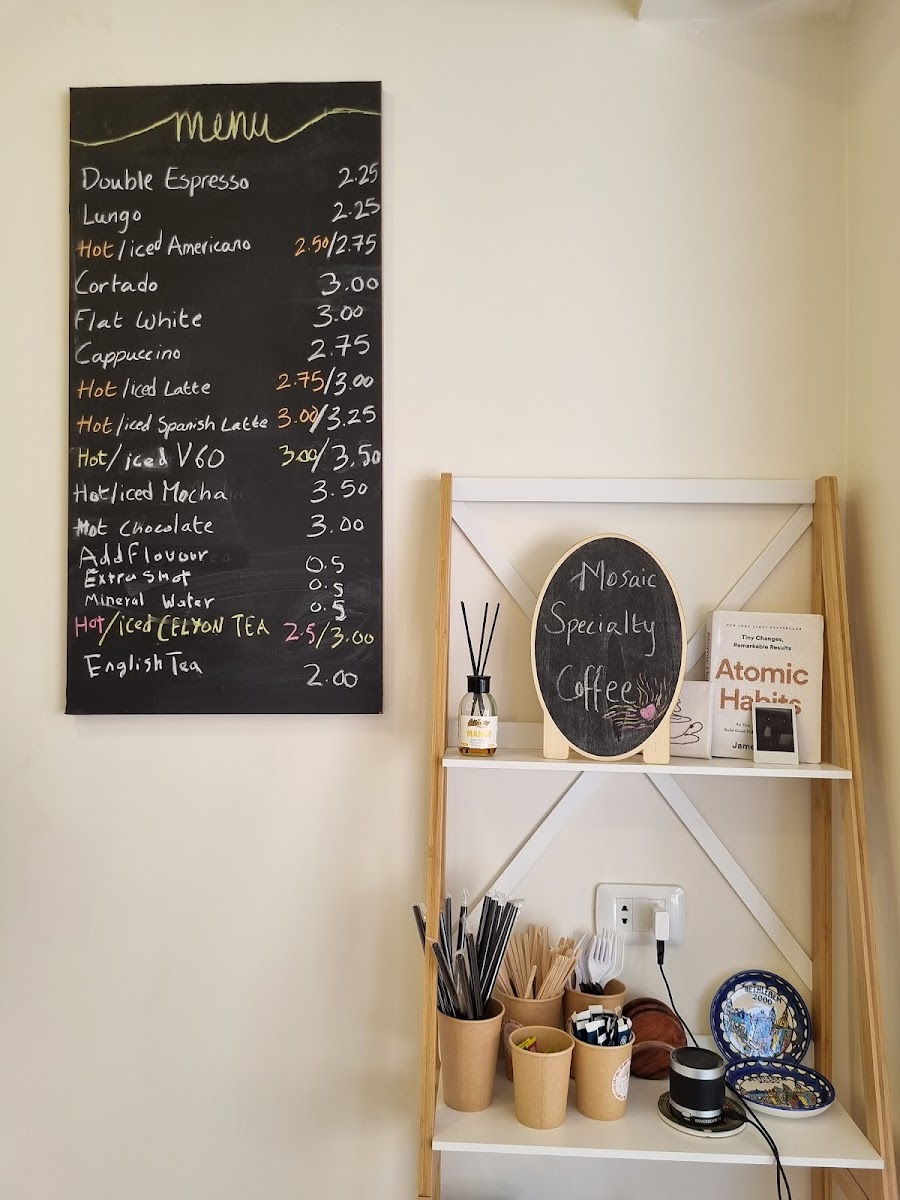 menu
Double Espresso 2.25
Lungo 2.25
Hot/iced Americano 2.50/2.75
Cortado 3.00
Flat White 3.00
Cappuccino 2.75
Hot/iced Latte 2.75/3.00
Hot/iced Spanish Latte 3.00/3.25
Hot/iced V60 3.00/3.50
Hot/iced Mocha 3.50
Hot Chocolate 3.00
Add Flavour 0.5
Extra Shot 0.5
Mineral Water 0.5
Hot/iced CELYON TEA 2.5/3.00
English Tea 2.00
Mosaic
Specialty
Coffee
Tiny Changes,
Remarkable Results
Atomic
Habits
MANGO
BETHLEHEM
2000